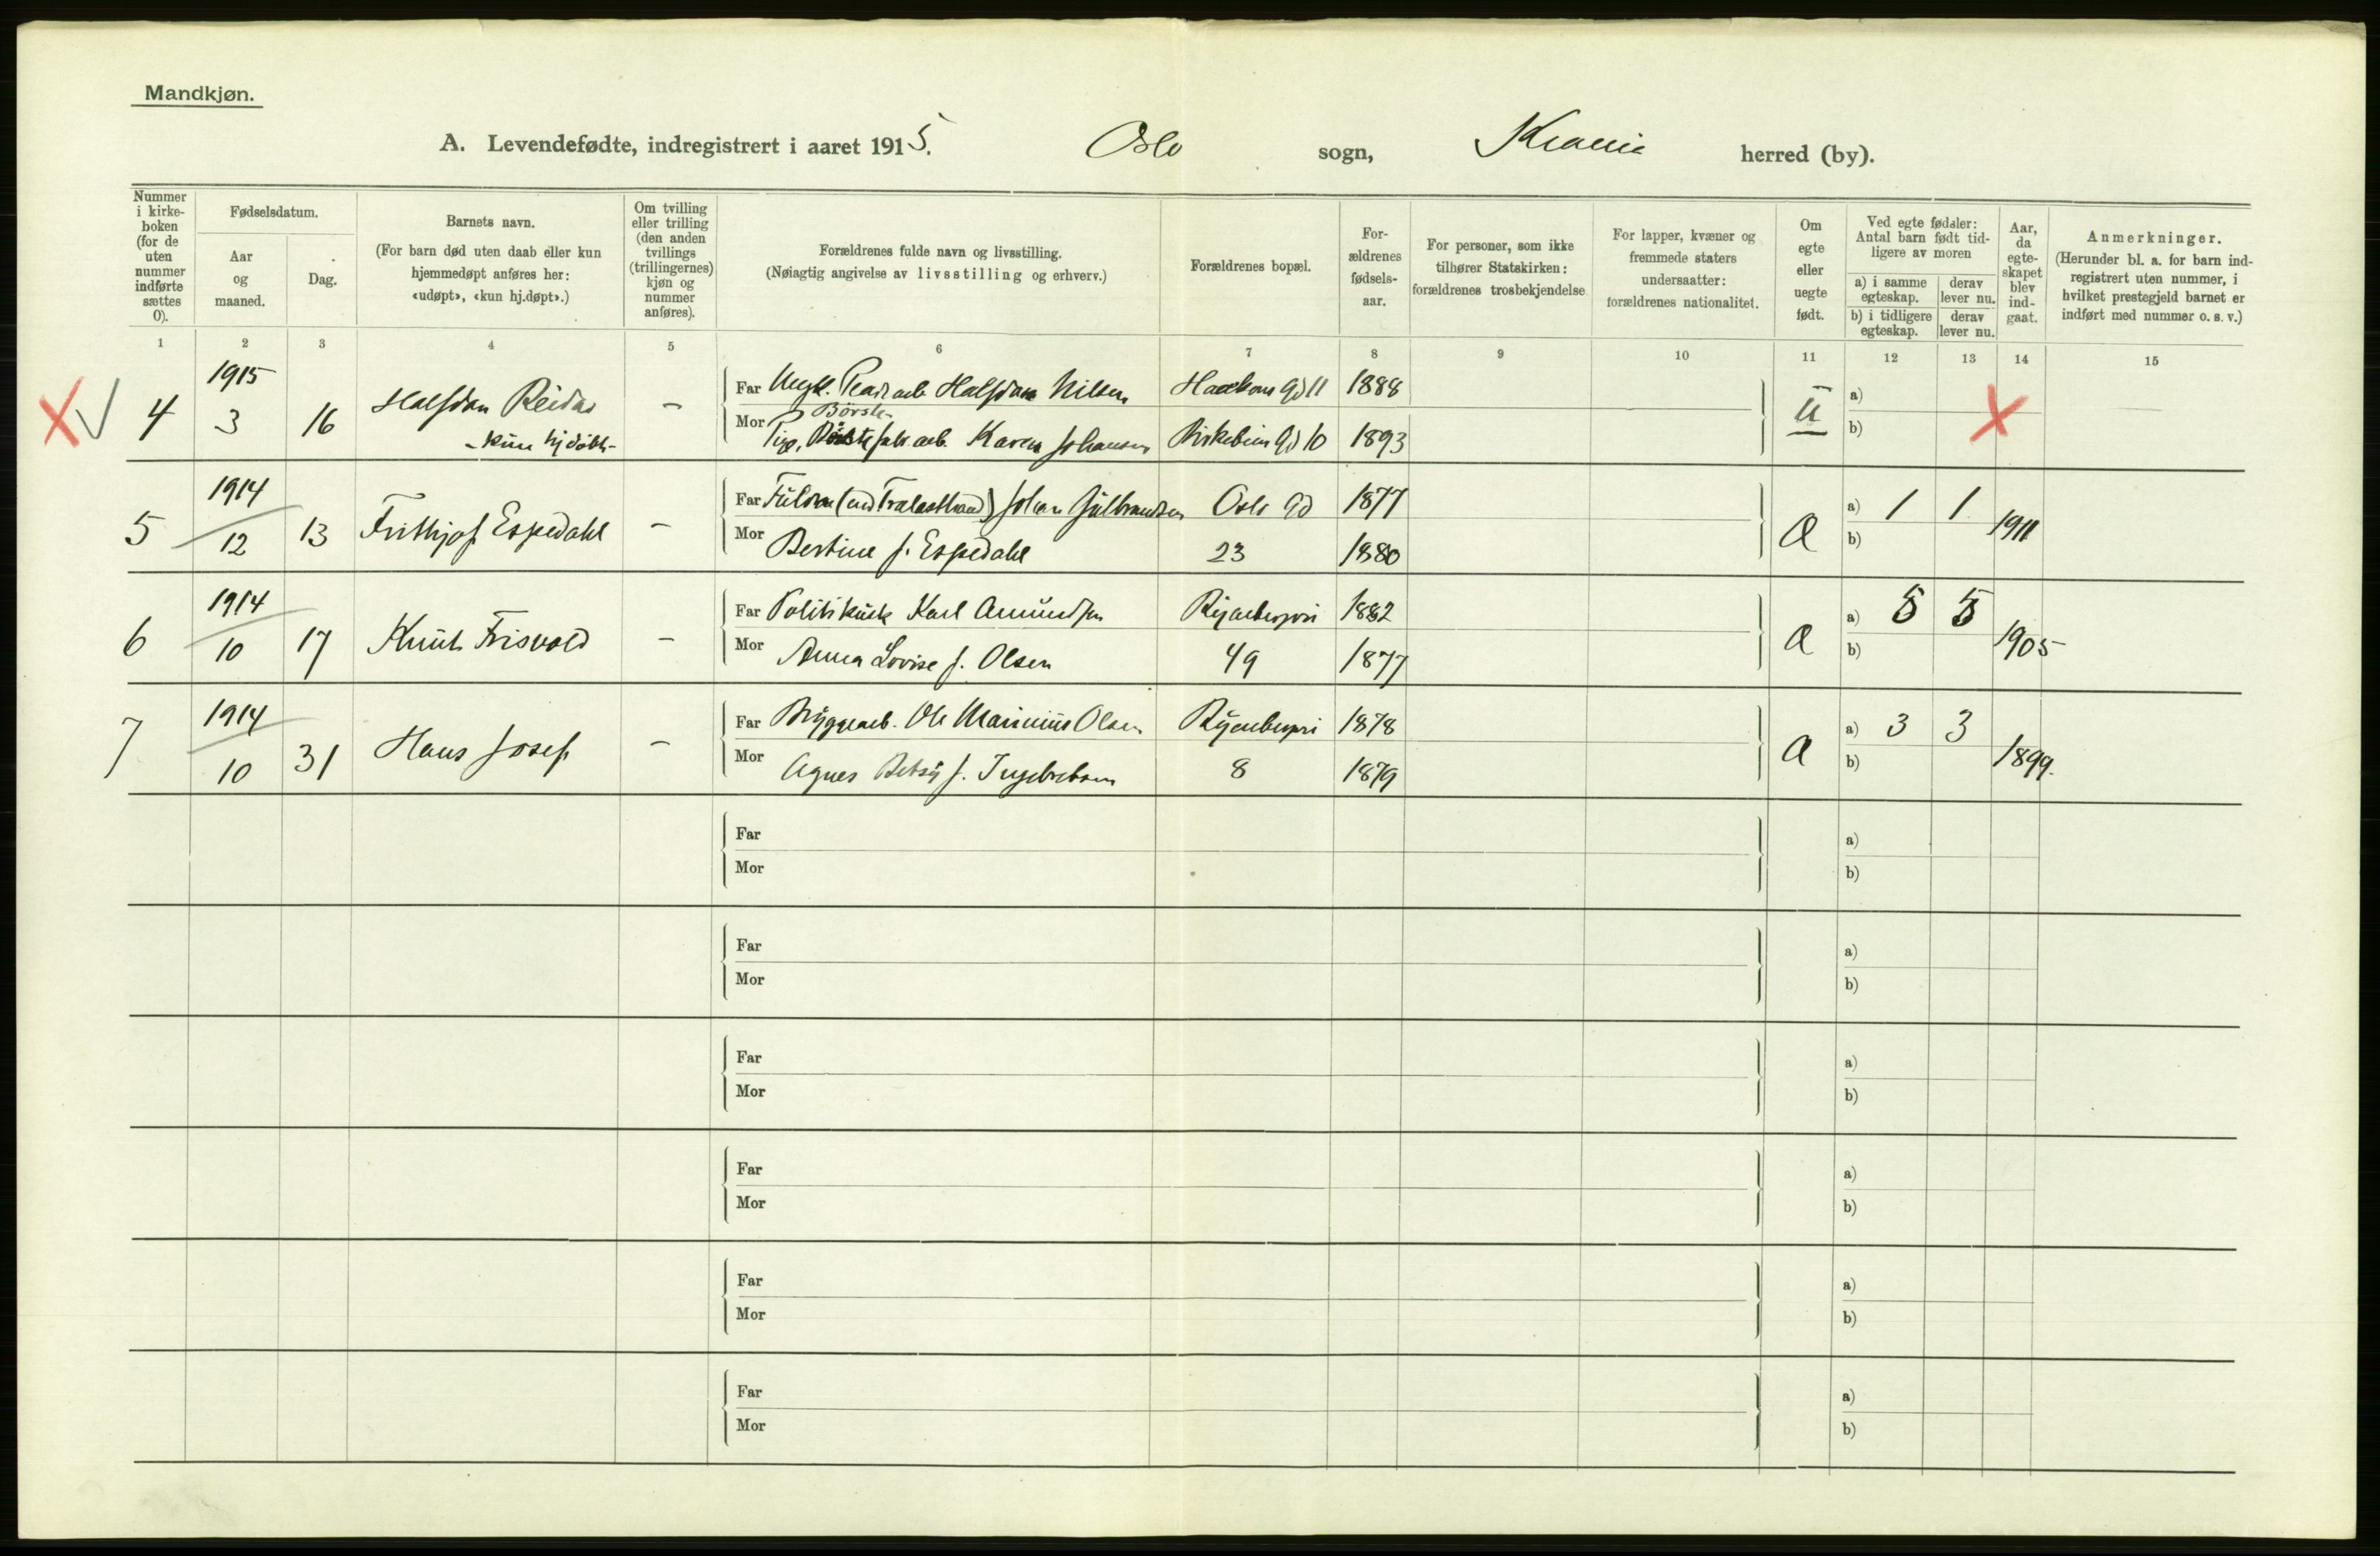 Mandkjøn.
A. Levendefødte, indregistrert i aaret 1915. Oslo sogn, Krania herred (by).
Nummer i kirke-boken (for de uten nummer indførte sættes 0).
Fødselsdatum.
Aar og maaned.
Dag.
Barnets navn.
(For barn død uten daab eller kun hjemmedøpt anføres her: «udøpt», «kun hj.døpt».)
Om tvilling eller trilling (den anden tvillings (trillingernes) kjøn og nummer anføres).
Forældrenes fulde navn og livsstilling.
(Nøiagtig angivelse av livsstilling og erhverv.)
Forældrenes bopæl.
For-ældrenes fødsels-aar.
For personer, som ikke tilhører Statskirken: forældrenes trosbekjendelse
For lapper, kvæner og fremmede staters undersaatter: forældrenes nationalitet.
Om egte eller uegte født.
Ved egte fødsler: Antal barn født tid-ligere av moren
a) i samme egteskap.
derav lever nu.
b) i tidligere egteskap.
derav lever nu.
Aar, da egte-skapet blev ind-gaat.
Anmerkninger.
(Herunder bl. a. for barn ind-registrert uten nummer, i hvilket prestegjeld barnet er indført med nummer o. s. v.)
1 2 3 4 5 6 7 8 9 10 11 12 13 14 15
X V 4 1915 3 16 Halfdan Reidar - kun hjdøbt - –
Far Ungk. Halfdan Nilsen Haakons Gd 11 1888
Mor Pige, Børste fabr arb. Karen Johansen Birkebein Gd 10 1893
U a) b) X
5 1914 12 13 Frithjof Espedahl –
Far Fuldm (end Trælasthand) Johan Gulbrandsen Oslo Gd 1877
Mor Bertine f. Espedahl 23 1880
a) 1 1 b) 1911
6 1914 10 17 Knut Frisvold –
Far Politikusk Karl Amundsen Ryenbergvei 1882
Mor Anna Lovise f. Olsen 49 1877
a) 5 5 b) 1905
7 1914 10 31 Hans Josef –
Far Bryggearb. Ole Marinius Olsen Ryenbergvei 1878
Mor Agnes Betsy f. Ingebretsen 8 1879
a) 3 3 b) 1899.
Far a)
Mor b)
Far a)
Mor b)
Far a)
Mor b)
Far a)
Mor b)
Far a)
Mor b)
Far a)
Mor b)